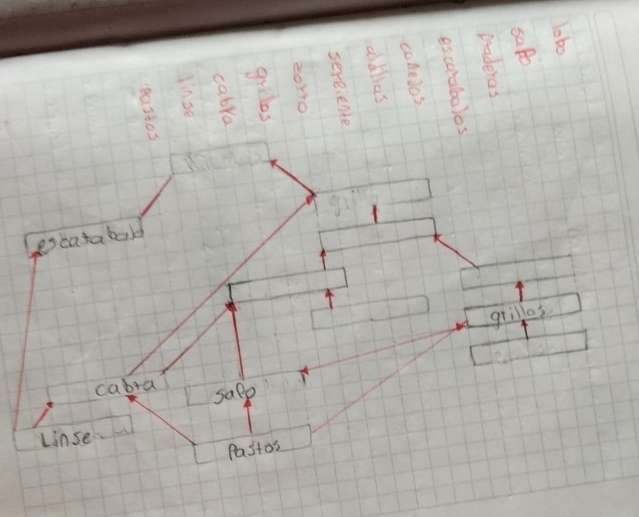 lobo
sapo
praderas
escarabajos
conejos
ardillas
serpiente
zorro
grillos
cabra
linse
pastos
escarabab
grillos
cabra
sapo
Linse
Pastos